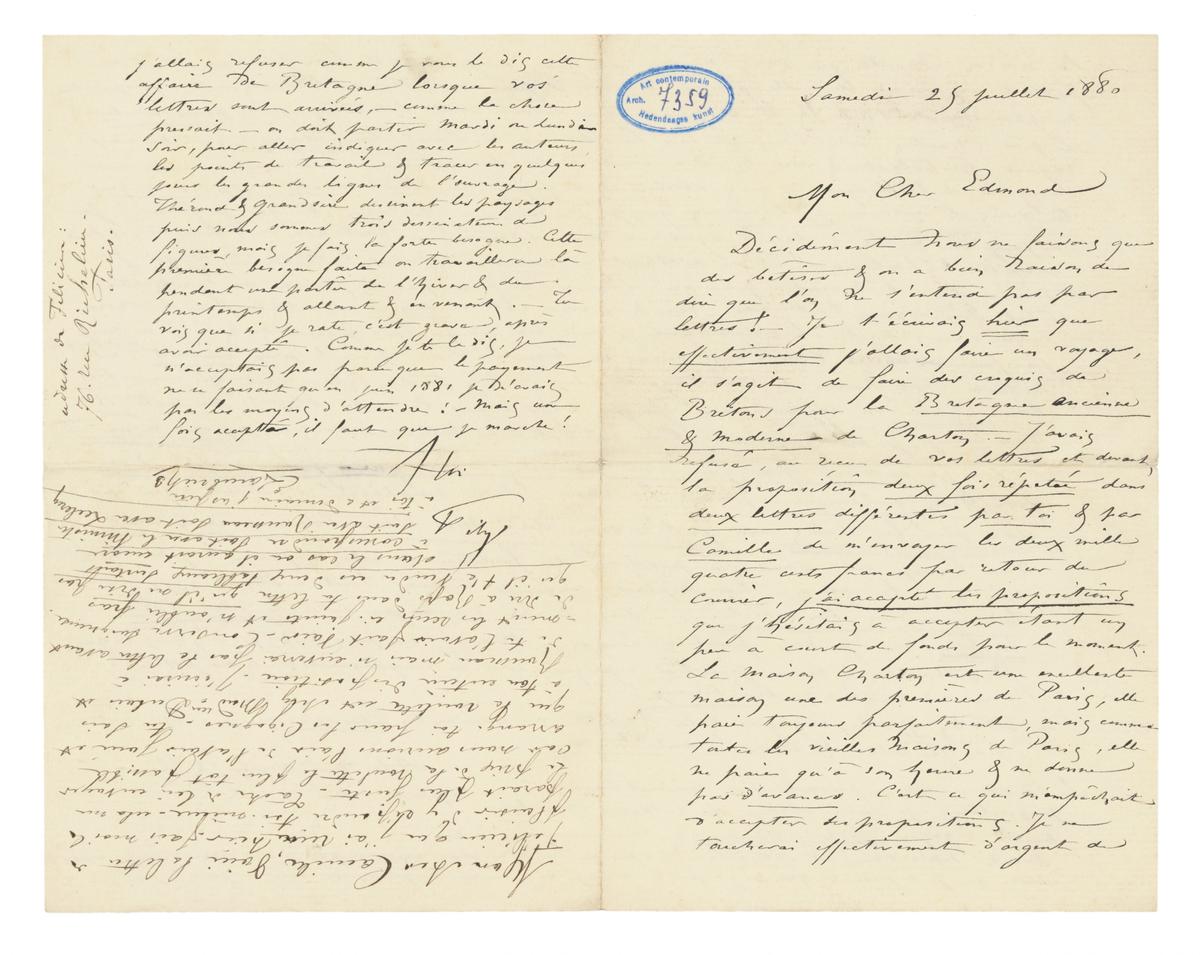 Art contemporain
Arch. 7359
Hedendaagse kunst
Samedi 25 juillet 1880
Mon Cher Edmond
Décidément nous ne faisons que
des bêtises & on a bien raison de
dire que l'on ne s'entend pas par
lettres! – Je t'écrivais hier que
effectivement j'allais faire un voyage,
il s'agit de faire des croquis de
Bretons pour la Bretagne ancienne
& moderne de Charton. – J'avais
refusé, au reçu de vos lettres et devant
la proposition deux fois repetée dans
deux lettres différentes par toi & par
Camille de m'envoyer les deux mille
quatre cents francs par retour du
courrier, j'ai accepté les propositions
que j'hésitais à accepter étant un
peu à court de fonds pour le moment.
La maison Charton est une excellente
maison une des premières de Paris, elle
paie toujours parfaitement, mais comme
toutes les vieilles maisons de Paris, elle
ne paie qu'à son heure & ne donne
pas d'avances. C'est ce qui m'empêchait
d'accepter ses propositions. Je ne
toucherai effectivement d'argent de
j'allais refuser comme je vous le dis cette
affaire de Bretagne lorsque vos
lettres sont arrivées, – comme la chose
pressait – on doit partir Mardi ou Lundi
soir, pour aller indiquer avec les auteurs
les points de travail & tracer en quelques
jours les grandes lignes de l'ouvrage.
Thérond & Grandsire dessinent les paysages
puis nous sommes trois dessinateurs de
figures, mais je fais la forte besogne. Cette
première besogne faite on travaillera là
pendant une partie de l'hiver & du
printemps & allant & en venant. – Tu
vois que si je rate, c'est grave, après
avoir accepté. Comme je te le dis, je
n'acceptais pas parce que le payement
ne se faisant qu'en juin 1881 je n'avais
pas les moyens d'attendre! – Mais une
fois accepté, il faut que je marche!
adresse de Félicien:
76. rue Richelieu.
Paris.
Mon cher Camille, Voici la lettre de
Félicien que j'ai reçue hier, fais moi le
plaisir d'y répondre toi-même – cela me
parait plus juste – Tâche de lui envoyer
le prix de la roulotte le plus tôt possible
à ton entière disposition. J'écrirai à
Rousseau mais n'enverrai pas la lettre avant